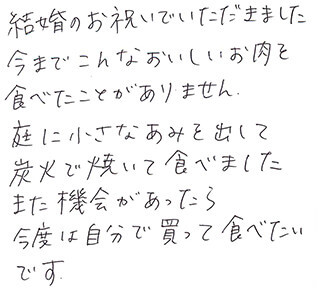 結婚のお祝いでいただきました
今までこんなおいしいお肉を
食べたことがありません.
庭に小さなあみを出して
炭火で焼いて食べました
また機会があったら
今度は自分で買って食べたい
です.